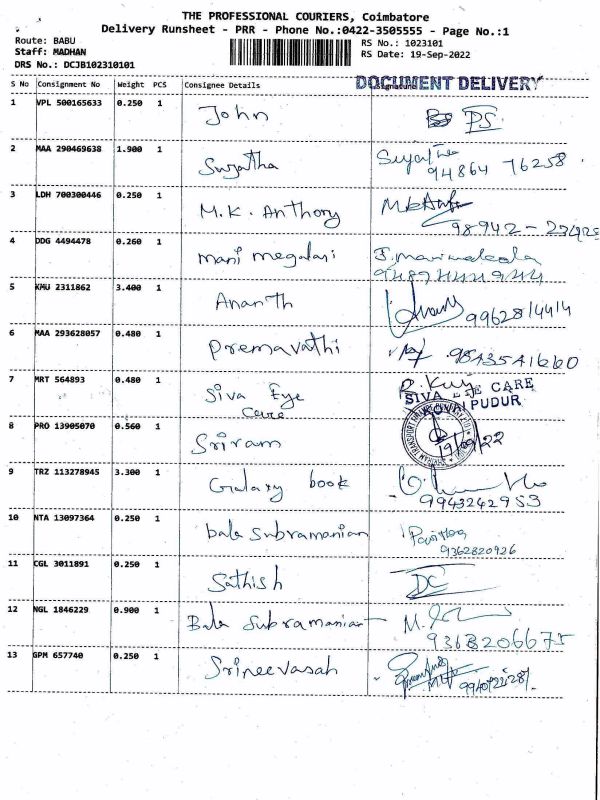 THE PROFESSIONAL COURIERS, Coimbatore
Delivery Runsheet - PRR - Phone No.:0422-3505555 - Page No.:1
Route: BABU
RS No.: 1023101
Staff: MADHAN
RS Date: 19-Sep-2022
DRS No.: DCJB102310101
S No Consignment No Weight PCS Consignee Details DOCUMENT DELIVERY
1 VPL 500165633 0.250 1 John PS
2 MAA 290469638 1.900 1 Sujatha Sujatha
94864 76258
3 LDH 700300446 0.250 1 M.K. Anthony
98942-
4 DDG 4494478 0.260 1 mani megalai
5 KMU 2311862 3.400 1 Ananth 9962814414
6 MAA 293628057 0.480 1 Premavathi 9843541660
7 MRT 564893 0.480 1 Siva Eye
Care
SIVA EYE CARE
PUDUR
8 PRO 13905070 0.560 1 Sriram 19/09/22
9 TRZ 113278945 3.300 1 Galaxy book
9943242953
10 NTA 13097364 0.250 1 bala subramanian
9362820926
11 CGL 3011891 0.250 1 Sathish DC
12 NGL 1846229 0.900 1 Bala Subramanian M.
9368206675
13 GPM 657740 0.250 1 Srineevasah